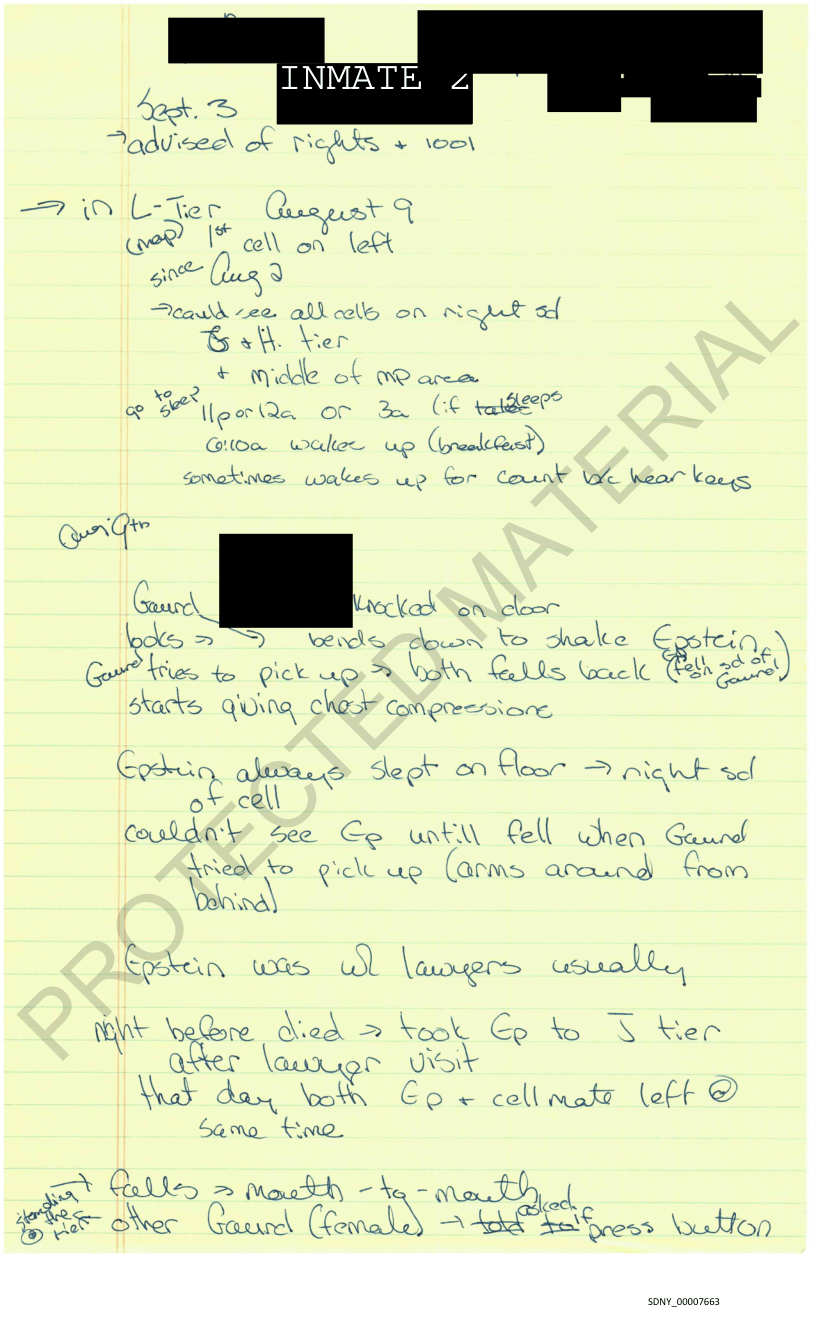 INMATE 2
Sept. 3
→ advised of rights + 1001
→ in L-Tier August 9
(map) 1st cell on left
since Aug 2
→ could see all cells on right sd
G + H. tier
+ middle of mp area
go to sleep? 11p or 12a or 3a (if sleeps
6:10a wakes up (breakfast)
sometimes wakes up for count b/c hear keys
Aug 9th
Gaurd knocked on door
looks → → bends down to shake Epstein
Gaurd tries to pick up → both falls back (Ep fell on sd of Gaurd)
starts giving chest compressions
Epstein always slept on floor → right sd
of cell
couldn't see Ep untill fell when Gaurd
tried to pick up (arms around from
behind)
Epstein was w/ lawyers usually
right before died → took Ep to J tier
after lawyer visit
that day both Ep + cellmate left @
same time
→ falls → mouth-to-mouth
standing @ the tier other Gaurd (female) → asked if press button
PROTECTED MATERIAL
SDNY_00007663